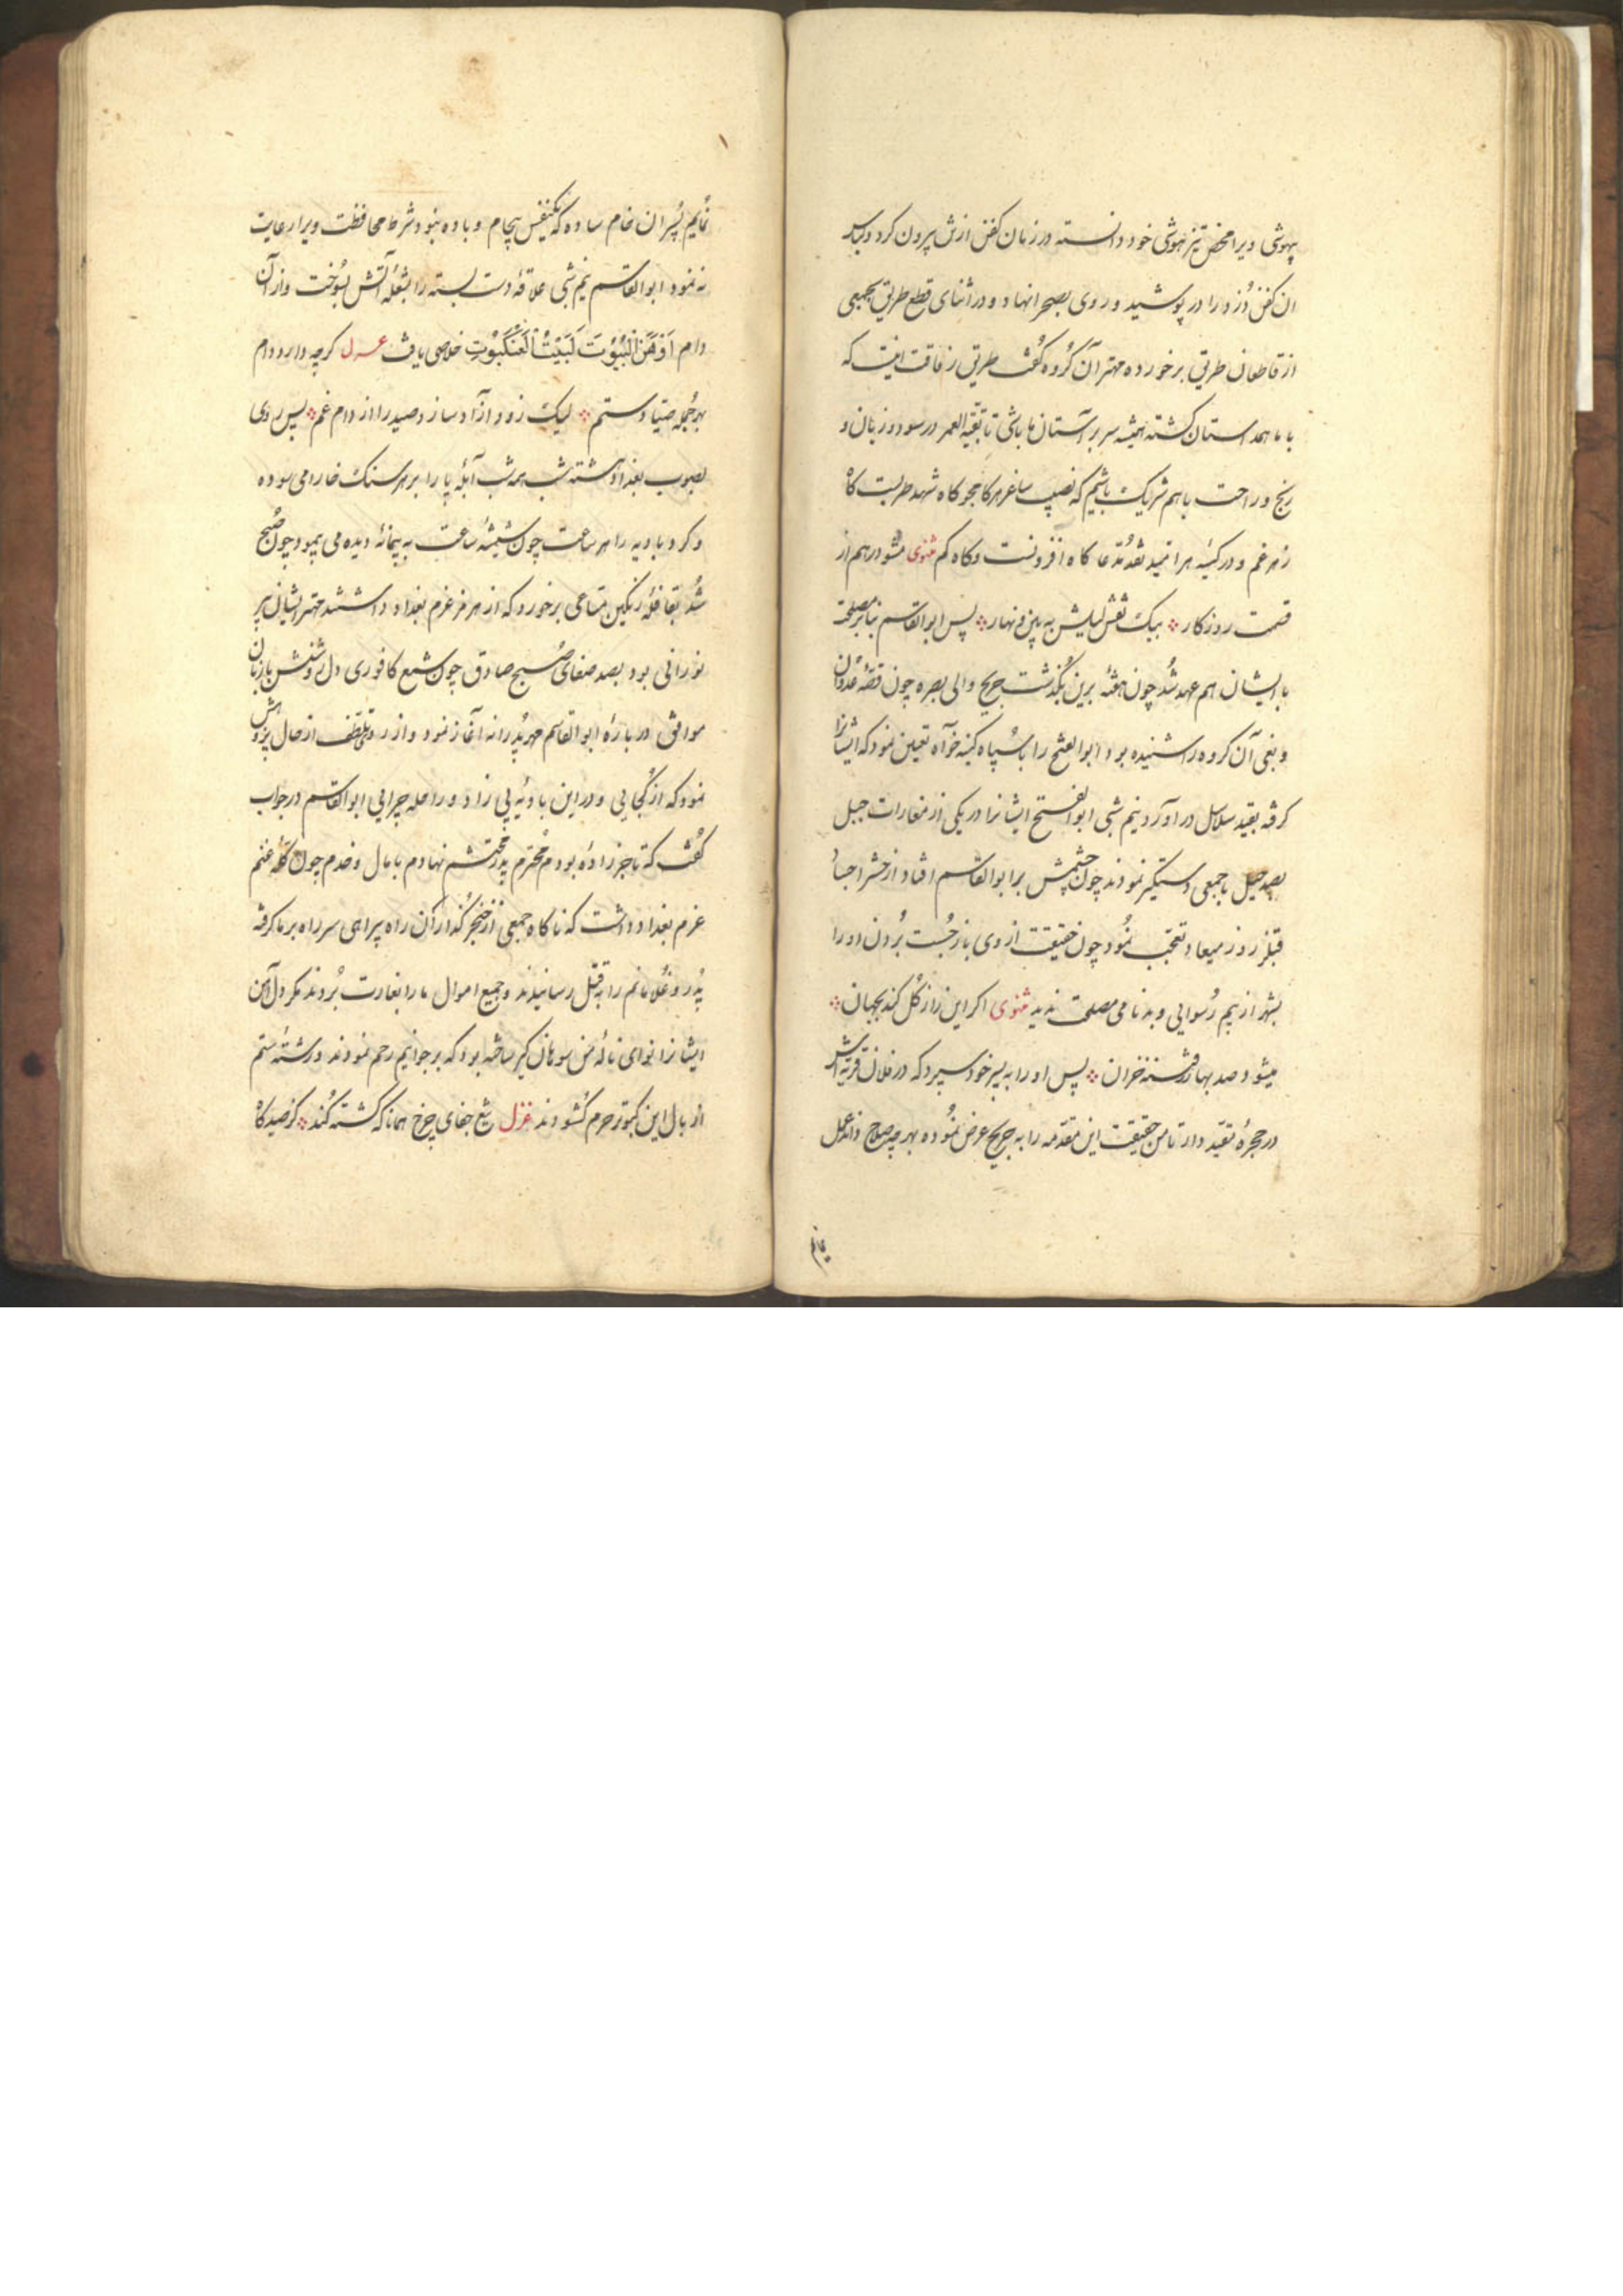 بیهوشی ویرا محض تیزهوشی خود دانسته در زمان کفن ازش بیرون کرد و لباس
ان کفن دزد را در پوشید و روی بصحرا نهاد و در اثنای قطع طریق بجمعی
از قاطعان طریق برخورده مهتر آن گروه گفت طریق رفاقت اینست که
با ما همداستان گشته همیشه سر بر آستان ما باشی تا بقیة العمر در سود و زیان و
رنج و راحت باهم شریک باشیم که نصیب ساغر هر کامجو کاه شهد طربست کاه
زهر غم و در کیسه هر امید نقد مدعا کاه افزونست و کاه کم مثنوی مشو درهم از
قسمت روزکار ❖ بیک نقش لیلش به بین و نهار ❖ پس ابوالقاسم بنا بر مصلحت
با ایشان هم عهد شد چون هفته برین بگذشت جریح والی بصره چون قصه عدوان
و بغی آن کروه را شنیده بود ابوالفتح را با سپاه کینه خواه تعیین نمود که ایشانرا
کرفته بقید سلاسل در آورد نیم شبی ابوالفتح ایشانرا در یکی از مغارات جبل
بصد حیل با جمعی دستگیر نمودند چون چشمش بر ابوالقاسم افتاد از حشر اجساد
قبل از روز میعاد تعجب نمود چون حقیقت از وی باز جست بردن او را
بشهر از بیم رسوایی و بدنامی مصلحت ندید مثنوی اکر این راز کل کند بجهان ❖
میشود صد بهار فتنه خزان ❖ پس او را به پسر خود سپرد که در فلان قریه اش
در حجره مقید دار تا من حقیقت این مقدمه را به جریح عرض نموده بهرچه صلاح داند عمل
نمایم
نمایم پسران خام ساده که یکنفس بیجام و باده نبود شرط محافظت ویرا رعایت
نه نمود ابوالقاسم نیم شبی علاقه دست بسته را بشعله آتش بسوخت و از آن
دام اَوْهَنَ الْبُيُوْتَ لَبَيْتُ الْعَنْكَبُوْتِ خلاصی یافت غزل کرچه دارد دام
بهر جمله صیاد ستم ❖ لیک زود آزاد سازد صید را از دام غم ❖ پس روی
بصوب بغداد گشته شب همه شب آبله پا را بر هر سنک خارا می سوده
و کرد بادیه را هر ساعت چون شیشه ساعت به پیمانه دیده می پیمود چون صبح
شد بقافله رنکین متاعی برخورد که از هرمز عزم بغداد داشتند مهتر ایشان پیر
نورانی بود بصد صفای صبح صادق چون شمع کافوری دل روشنش با زبان
موافق درباره ابوالقاسم مهر پدرانه آغاز نمود و از روی تلطف از حال پژوهش
نمود که از کجایی و در این بادیه بی زاد و راحله چرایی ابوالقاسم در جواب
گفت که تاجرزاده بودم محترم پدر محتشم نهادم با مال و خدم چون کله غنم
عزم بغداد داشت که ناکاه جمعی از خنجر گذاران راه پیراهی سر راه بر ما کرفته
پدر و غلامانم را به قتل رسانیدند و جمیع اموال ما را بغارت بردند مکر دل آهن
ایشانرا نوای ناله من سوهان کیر ساخته بود که بر جوانیم رحم نمودند و رشته ستم
از بال این کبوتر حرم گشودند غزل تیغ جفای چرخ همانا که گشته کند ❖ کز صیدکاه